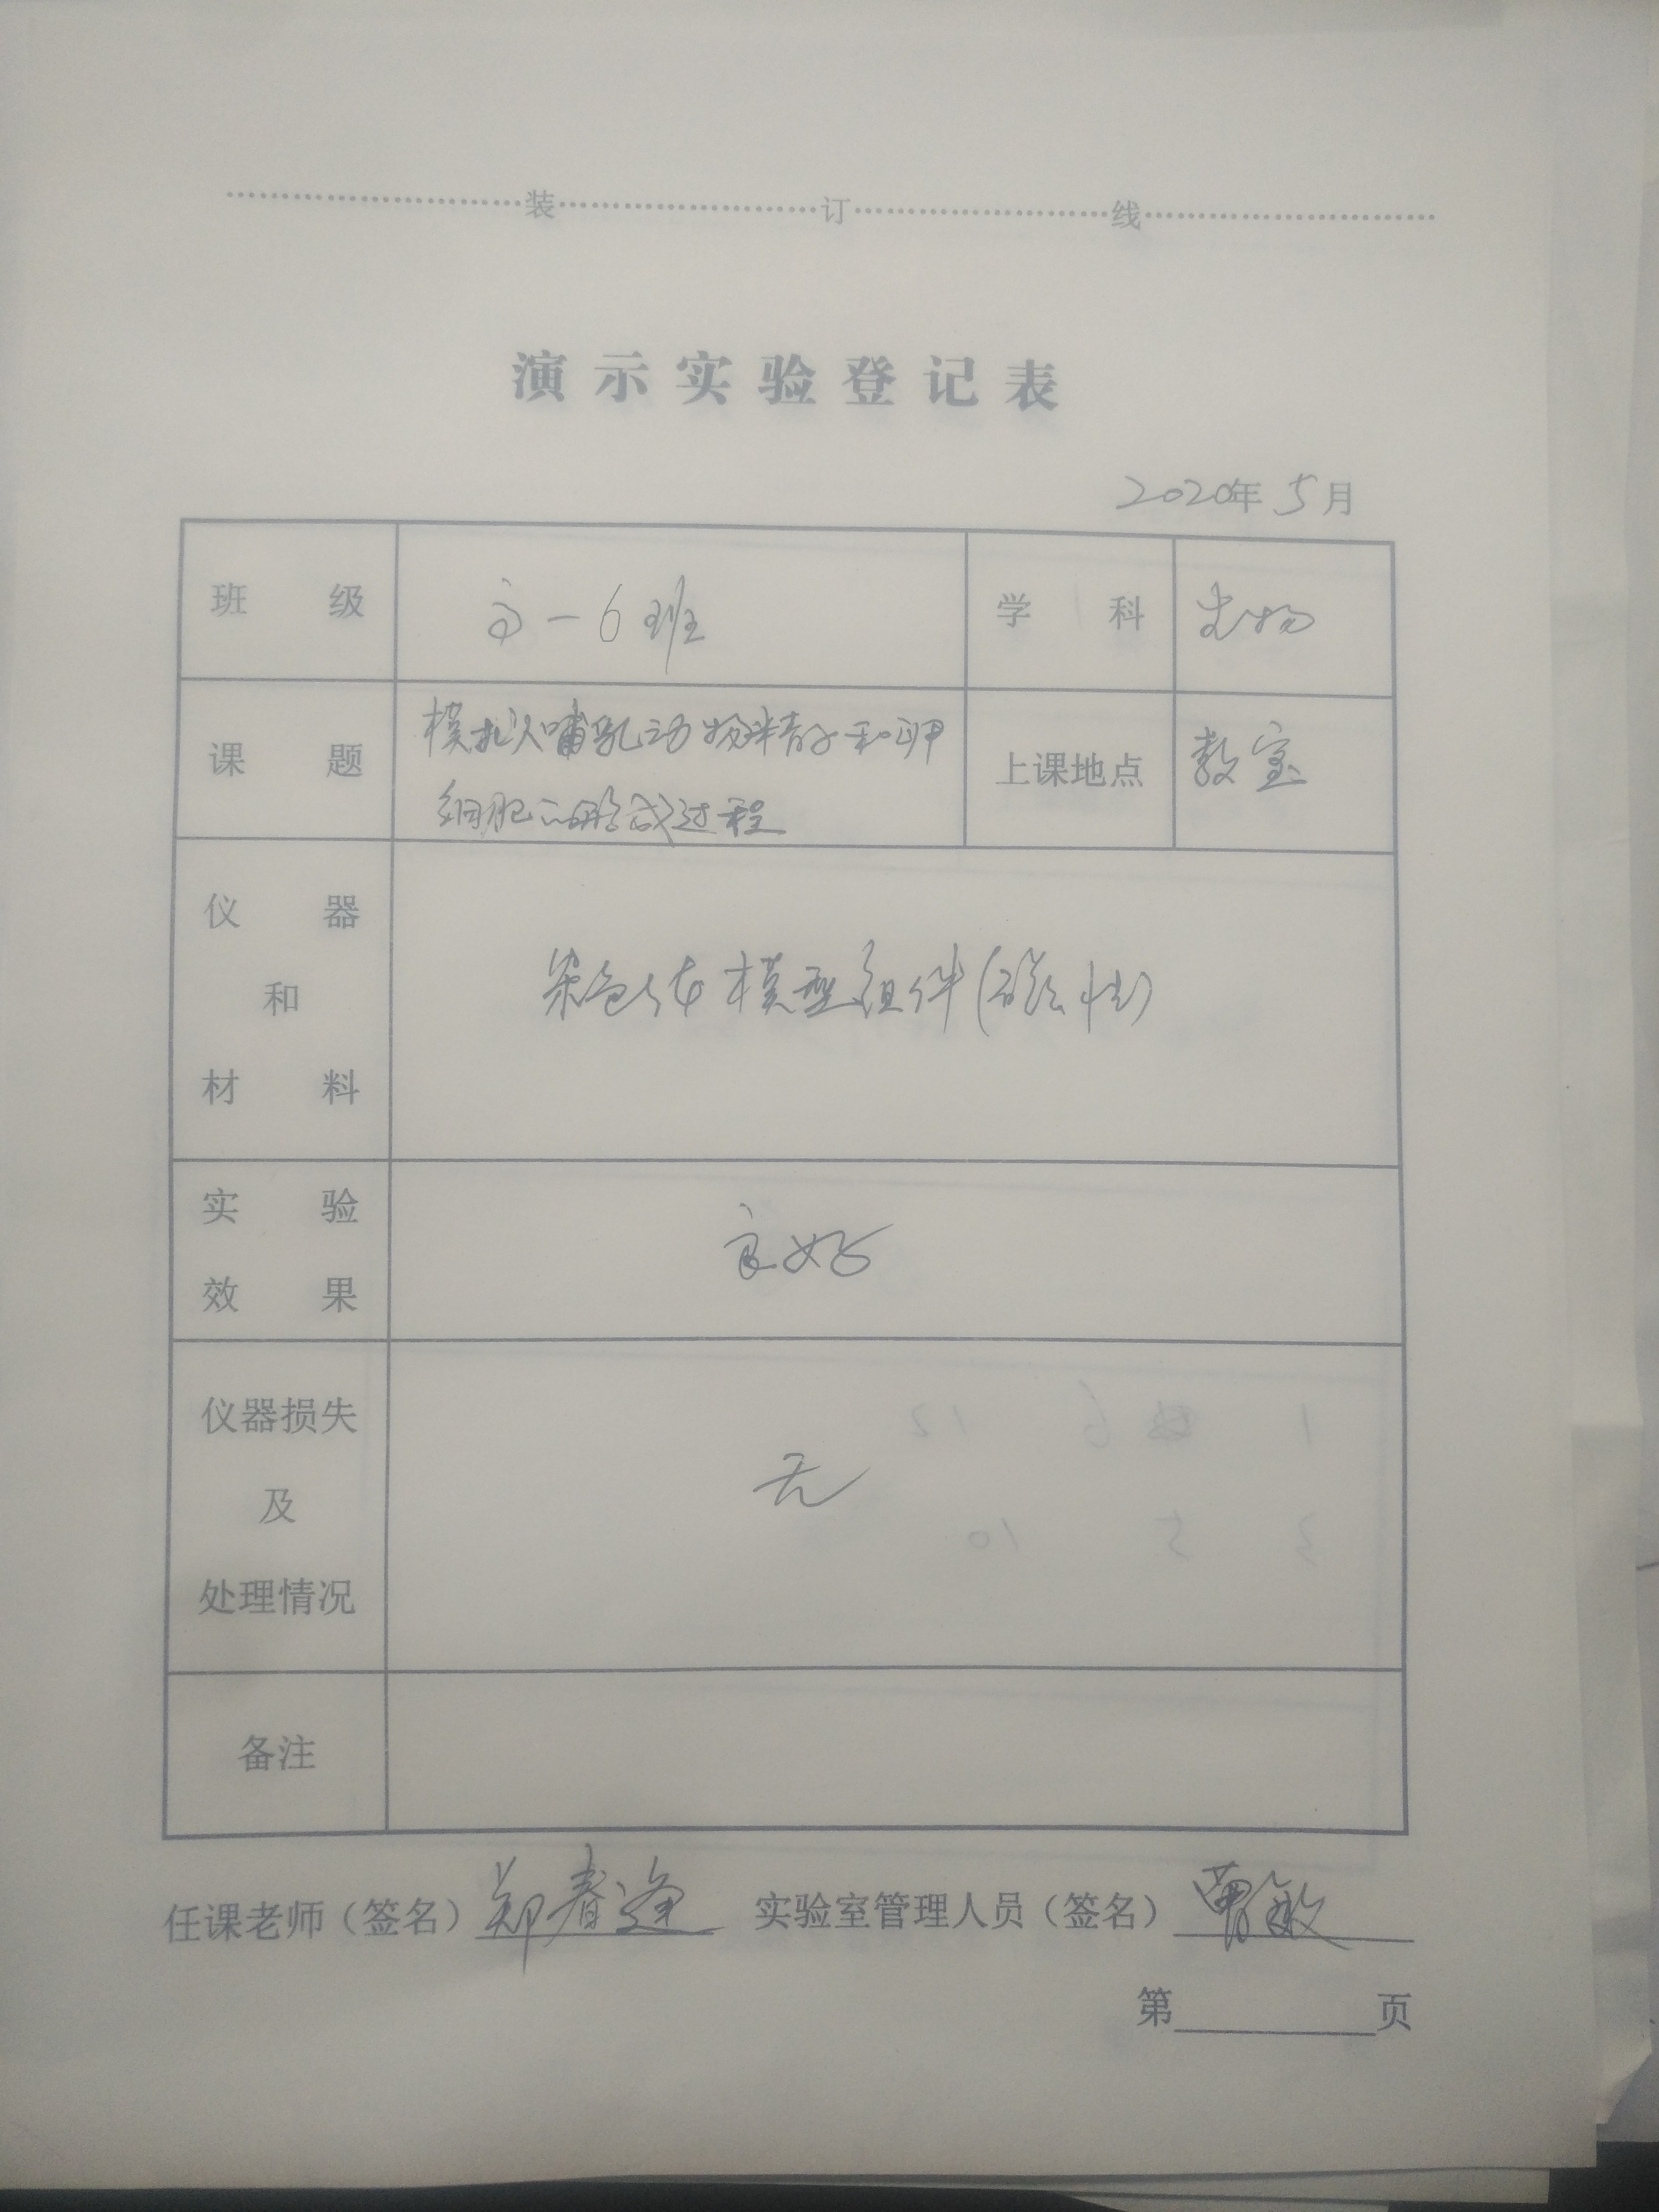 装 订 线
演示实验登记表
2020年 5月
班 级 高一6班 学 科 生物
课 题 模拟哺乳动物精子和卵
细胞的形成过程 上课地点 教室
仪 器
和
材 料
染色体模型组件(磁性)
实 验
效 果
良好
仪器损失
及
处理情况
无
备注
任课老师（签名）郑春逢 实验室管理人员（签名）曹敏
第 页